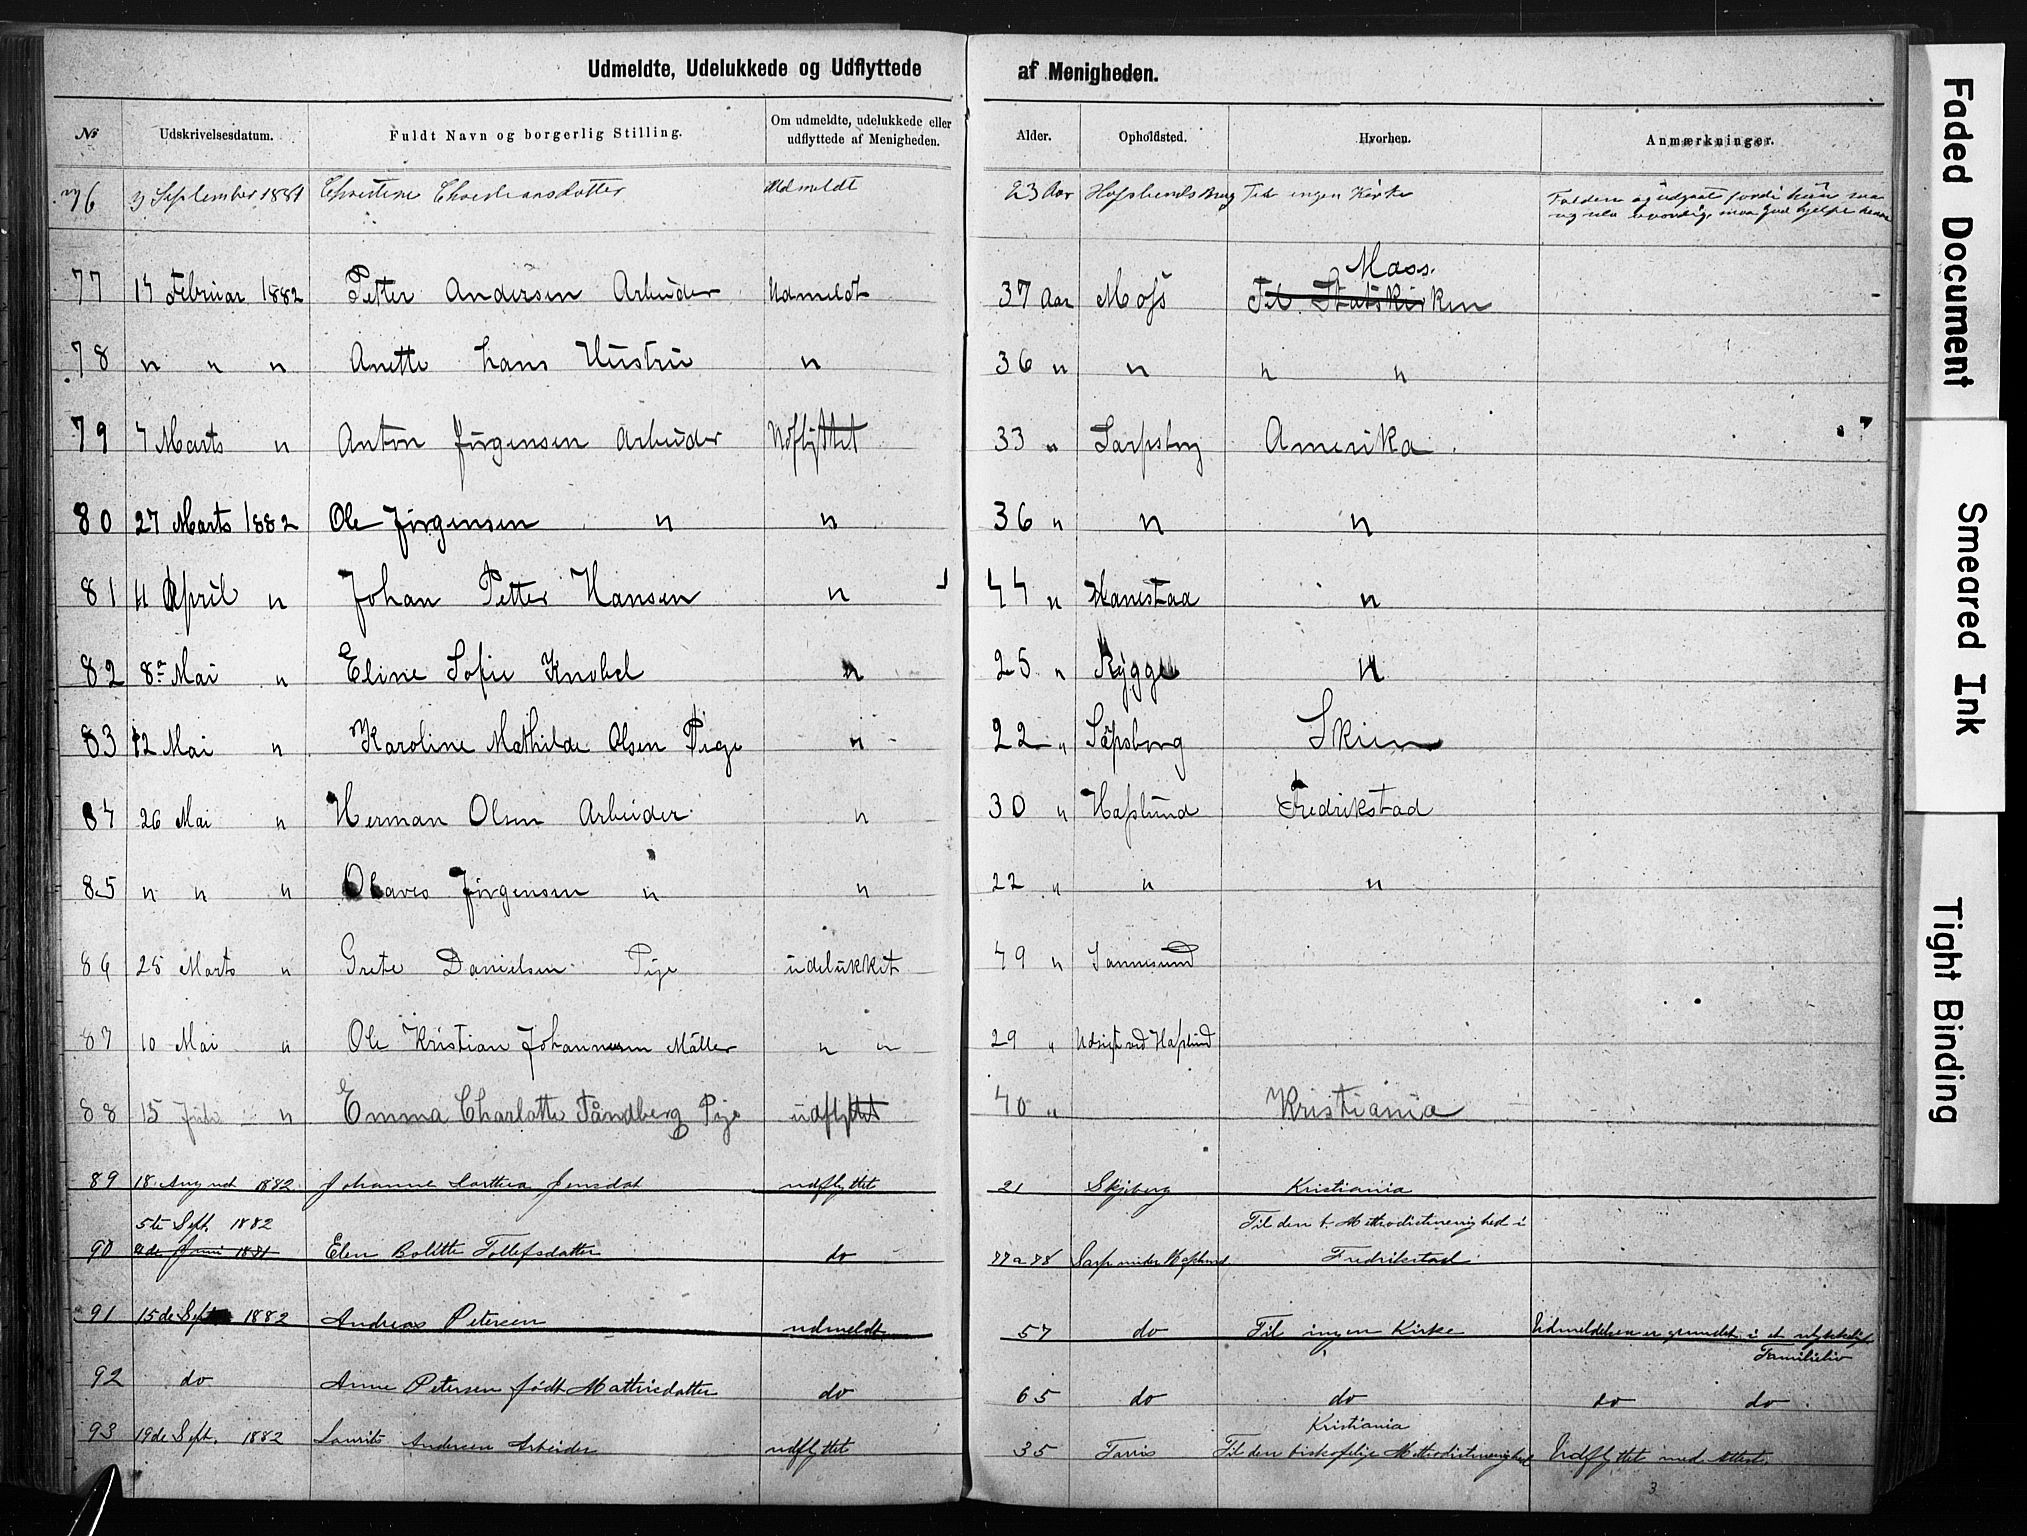 Udmeldte, Udelukkede og Udflyttede af Menigheden.
No Udskrivelsesdatum. Fuldt Navn og borgerlig Stilling. Om udmeldte, udelukkede eller udflyttede af Menigheden. Alder. Opholdsted. Hvorhen. Anmærkninger.
76 3 September 1881 Christine Christiansdatter Udmeldt 23 Aar Hafslunds Brug Til ingen Kirke
Mass.
77 14 Februar 1882 Petter Andersen Arbeider Udmeldt 37 Aar Moss Til Statskirken
78 " " " Anette hans Hustru " 36 " " " "
79 4 Marts " Anton Jörgensen Arbeider Udflyttet 33 " Sarpsborg Amerika
80 27 Marts 1882 Ole Jörgensen " " 36 " " "
81 11 April " Johan Petter Hansen " 44 " Hanestaa "
82 8de Mai " Eline Sofie Knobel " 25 " Rygge "
83 12 Mai " Karoline Mathilde Olsen Pige " 22 " Sarpsborg Skien
84 26 Mai " Herman Olsen Arbeider " 30 " Hafslund Fredrikstad
85 " " " Olaves Jörgensen " " 22 " " "
86 25 Marts " Grete Danielsen Pige udelukket 49 " Sannesund
87 10 Mai " Ole Kristian Johannesen Mäller " " 29 " ved Hafslund
88 15 " Emma Charlotte Tåndberg Pige udflyttet 40 " Kristiania
89 18 August 1882 Johanne Dorthea Jensdat udflyttet 21 Skjeberg Kristiania
5te Sept. 1882 Til den b. Methodistmenighed i
90 Juni 1881 Elen Bolette Tollefsdatter do 47 a 48 Sarp under Hafslund Fredrikstad
91 15de Sept 1882 Andreas Petersen udmeldt 57 do Til ingen Kirke Udmeldelsen er grundet i et ulykkeligt
Familieliv
92 do Anne Petersen født Mathisdatter do 65 do do do do
Kristiania
93 19de Sept. 1882 Laurits Andersen Arbeider udflyttet 35 Tarris Til den biskopelige Methodistmenighed Udflyttet med Attest.
3
Faded Document
Smeared Ink
Tight Binding